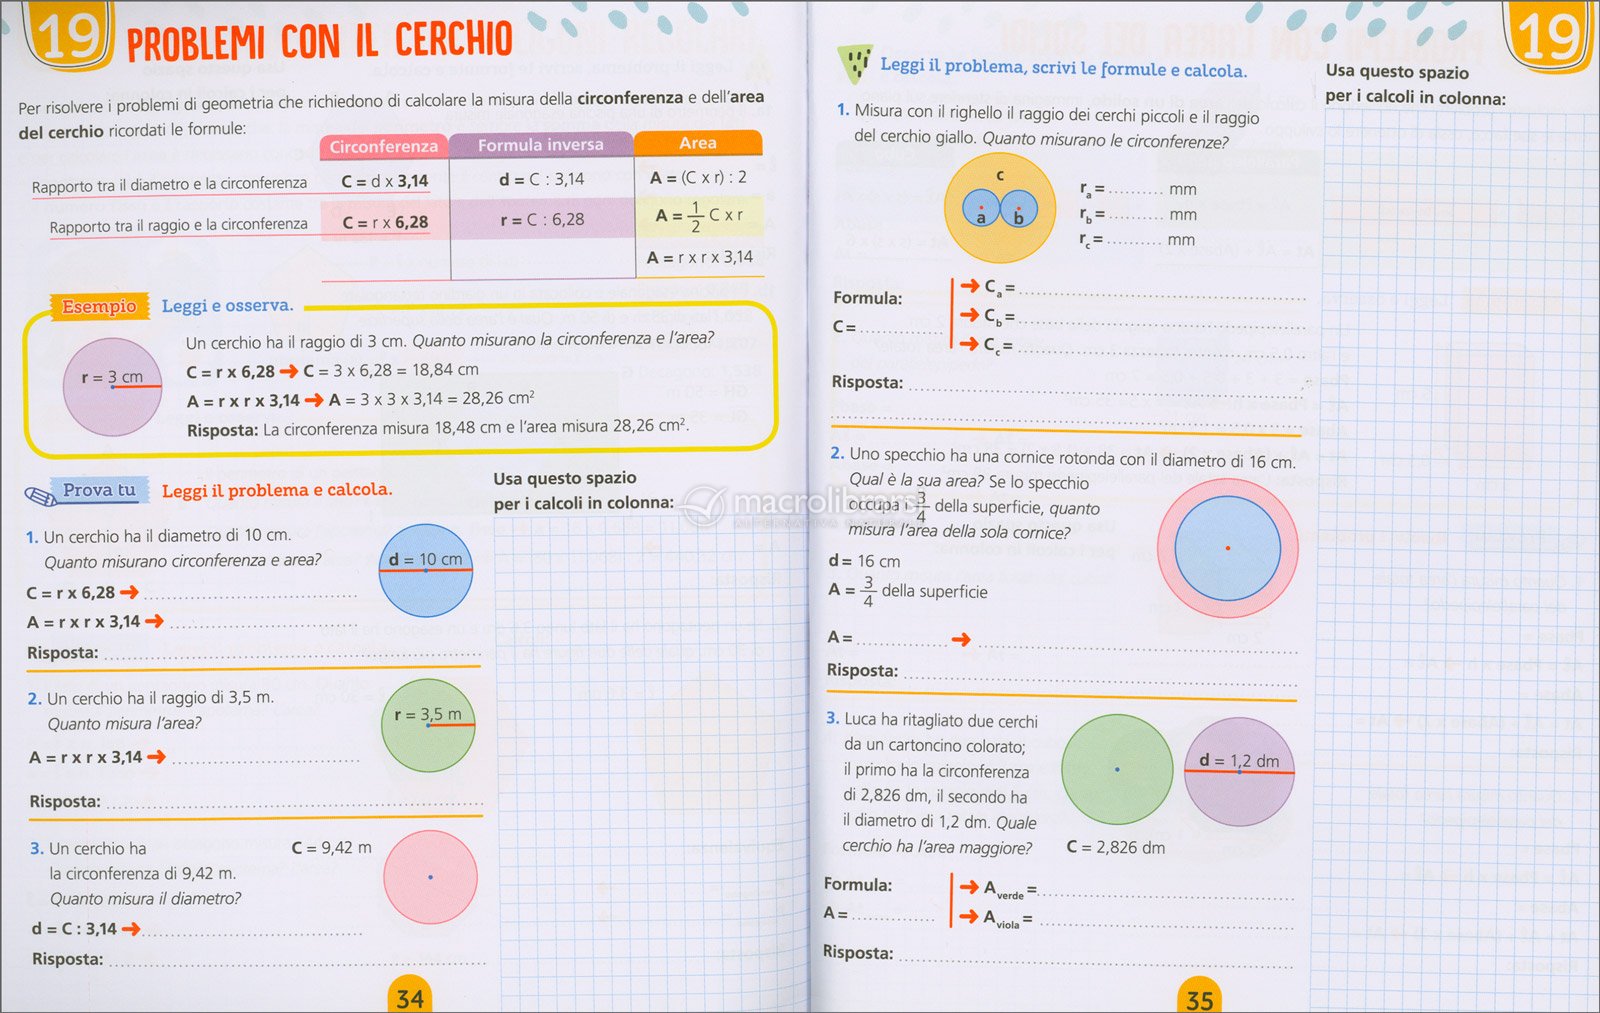 19 PROBLEMI CON IL CERCHIO
Per risolvere i problemi di geometria che richiedono di calcolare la misura della circonferenza e dell'area
del cerchio ricordati le formule:
Circonferenza Formula inversa Area
Rapporto tra il diametro e la circonferenza C = d x 3,14 d = C : 3,14 A = (C x r) : 2
Rapporto tra il raggio e la circonferenza C = r x 6,28 r = C : 6,28 A = 1/2 C x r
A = r x r x 3,14
Esempio Leggi e osserva.
r = 3 cm
Un cerchio ha il raggio di 3 cm. Quanto misurano la circonferenza e l'area?
C = r x 6,28 → C = 3 x 6,28 = 18,84 cm
A = r x r x 3,14 → A = 3 x 3 x 3,14 = 28,26 cm²
Risposta: La circonferenza misura 18,48 cm e l'area misura 28,26 cm².
Prova tu Leggi il problema e calcola.
Usa questo spazio
per i calcoli in colonna:
1. Un cerchio ha il diametro di 10 cm.
Quanto misurano circonferenza e area?
d = 10 cm
C = r x 6,28 →
A = r x r x 3,14 →
Risposta:
2. Un cerchio ha il raggio di 3,5 m.
Quanto misura l'area?
r = 3,5 m
A = r x r x 3,14 →
Risposta:
3. Un cerchio ha C = 9,42 m
la circonferenza di 9,42 m.
Quanto misura il diametro?
d = C : 3,14 →
Risposta:
34
19
Leggi il problema, scrivi le formule e calcola.
Usa questo spazio
per i calcoli in colonna:
1. Misura con il righello il raggio dei cerchi piccoli e il raggio
del cerchio giallo. Quanto misurano le circonferenze?
c
a b
ra = .......... mm
rb = .......... mm
rc = .......... mm
Formula:
C =
→ Ca =
→ Cb =
→ Cc =
Risposta:
2. Uno specchio ha una cornice rotonda con il diametro di 16 cm.
Qual è la sua area? Se lo specchio
occupa i 3/4 della superficie, quanto
misura l'area della sola cornice?
d = 16 cm
A = 3/4 della superficie
A = .......... →
Risposta:
3. Luca ha ritagliato due cerchi
da un cartoncino colorato;
il primo ha la circonferenza
di 2,826 dm, il secondo ha
il diametro di 1,2 dm. Quale
cerchio ha l'area maggiore?
d = 1,2 dm
C = 2,826 dm
Formula:
A =
→ Averde =
→ Aviola =
Risposta:
35
macrolibrarsi